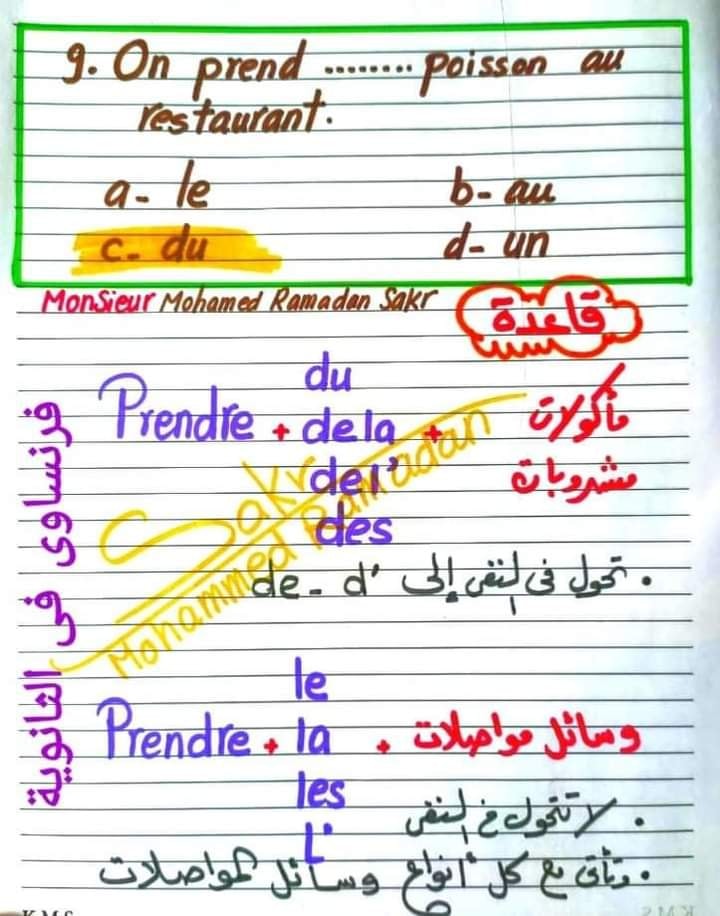 9. On prend ........ poisson au
restaurant.
a- le b- au
c- du d- un
Monsieur Mohamed Ramadan Sakr
قاعدة
du
Prendre + de la + مأكولات
de l' مشروبات
des
. تحول فى النفى إلى de - d'
Sakr
Mohammed Ramadan
فرنساوى فى الثانوية
le
Prendre + la + وسائل مواصلات
les
L'
. لا تتحول فى النفى
. وتأتى مع كل أنواع وسائل المواصلات